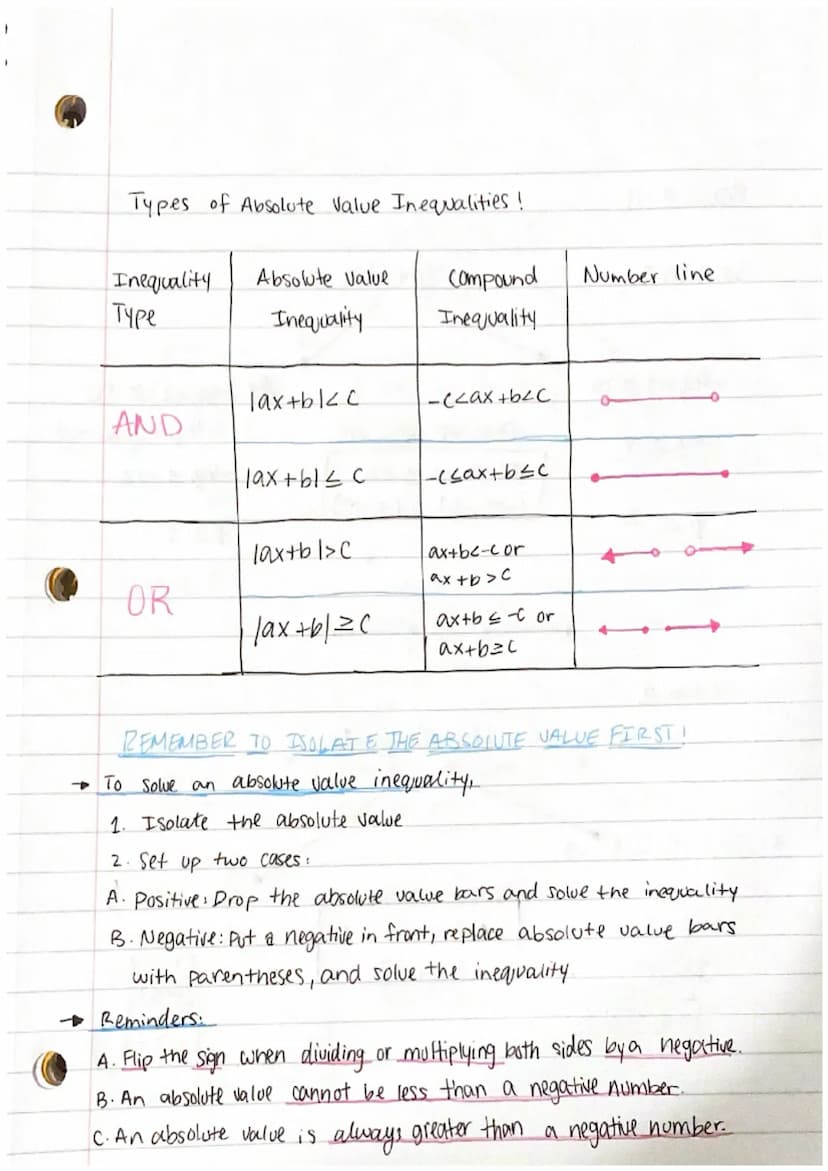 Types of Absolute Value Inequalities!
Inequality Type
Absolute Value Inequality
Compound Inequality
Number line
AND
|ax+b|< C
-C<ax+b<C
|ax+b|≤ C
-C≤ax+b≤C
OR
|ax+b|>C
ax+b<-C or
ax+b>C
|ax+b|≥C
ax+b≤-C or
ax+b≥C
REMEMBER TO ISOLATE THE ABSOLUTE VALUE FIRST!
→ To solve an absolute value inequality,
1. Isolate the absolute value
2. Set up two cases:
A. Positive: Drop the absolute value bars and solve the inequality
B. Negative: Put a negative in front, replace absolute value bars
with parentheses, and solve the inequality
→ Reminders:
A. Flip the sign when dividing or multiplying both sides by a negative.
B. An absolute value cannot be less than a negative number.
C. An absolute value is always greater than a negative number.